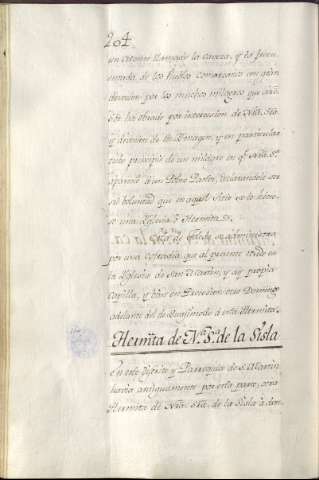 204
un Criado llamado la Caveza, y la frecu-
entada de los Pueblos comarcanos con gran
devocion por los muchos milagros que
Dios ha obrado por intercesion de Nra. Sra.
y devocion de su Ymagen, y en particular
tubo principio de un milagro en qe. Nra. Sa.
aparecio á un Pobre Pastor, declarandole era
su voluntad que en aquel sitio se la hicie-
se una Yglesia, y Hermita.
de Toledo se administra
por una Cofradia que al presente reside en
la Yglesia de San Martin, y en propia
Capilla, y van en Procesion este Domingo
adelante del de Quasimodo á esta Hermita.
Hermita de Na. Sa. de la Sisla
En este distrito y Parroquia de S. Martin,
havia antiguamente por esta parte, otra
Hermita de Nra. Sra. de la Sisla á don-